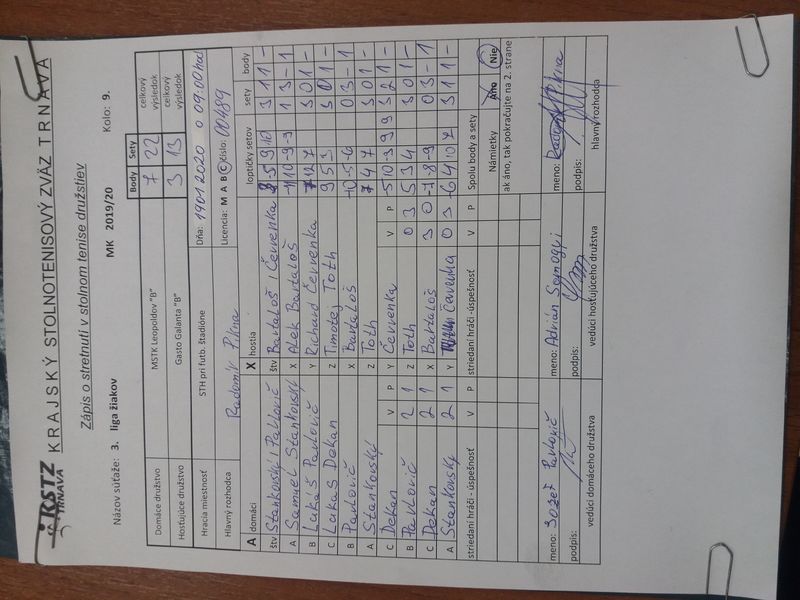 KSTZ
TRNAVA
KRAJSKÝ STOLNOTENISOVÝ ZVÄZ TRNAVA
Zápis o stretnutí v stolnom tenise družstiev
Názov súťaže: 3. liga žiakov MK 2019/20 Kolo: 9.
Body Sety
Domáce družstvo MSTK Leopoldov "B" 7 22 celkový výsledok
Hosťujúce družstvo Gasto Galanta "B" 3 13 celkový výsledok
Hracia miestnosť STH pri futb. štadióne Dňa: 19 01 2020 o 09:00 hod
Hlavný rozhodca Radomír Licencia: M A B C číslo: 00489
A domáci X hostia loptičky setov sety body
štv Stankovský / Pavlovič štv Bartaloš / Červenka -5 9 10 3 1 1 -
A Samuel Stankovský X Alek Bartaloš 10 -9 -9 1 3 - 1
B Lukáš Pavlovič Y Richard Červenka 12 7 3 0 1 -
C Lukáš Dekan Z Timotej Toth 9 5 3 0 1 -
B Pavlovič X Bartaloš -5 -6 0 3 - 1
A Stankovský Z Toth 7 4 7 3 0 1 -
C Dekan V P Y Červenka V P -5 10 -9 9 9 3 2 1 -
B Pavlovič 2 1 Z Toth 0 3 5 3 4 3 0 1 -
C Dekan 2 1 X Bartaloš 3 0 -7 -8 -9 0 3 - 1
A Stankovský 2 1 Y Červenka 0 3 -6 4 10 7 3 1 1 -
striedaní hráči - úspešnosť V P striedaní hráči - úspešnosť V P Spolu body a sety
Námietky Áno Nie
ak áno, tak pokračujte na 2. strane
meno: Jozef Pavlovič meno: Adrián Somogyi meno:
podpis: podpis: podpis:
vedúci domáceho družstva vedúci hosťujúceho družstva hlavný rozhodca